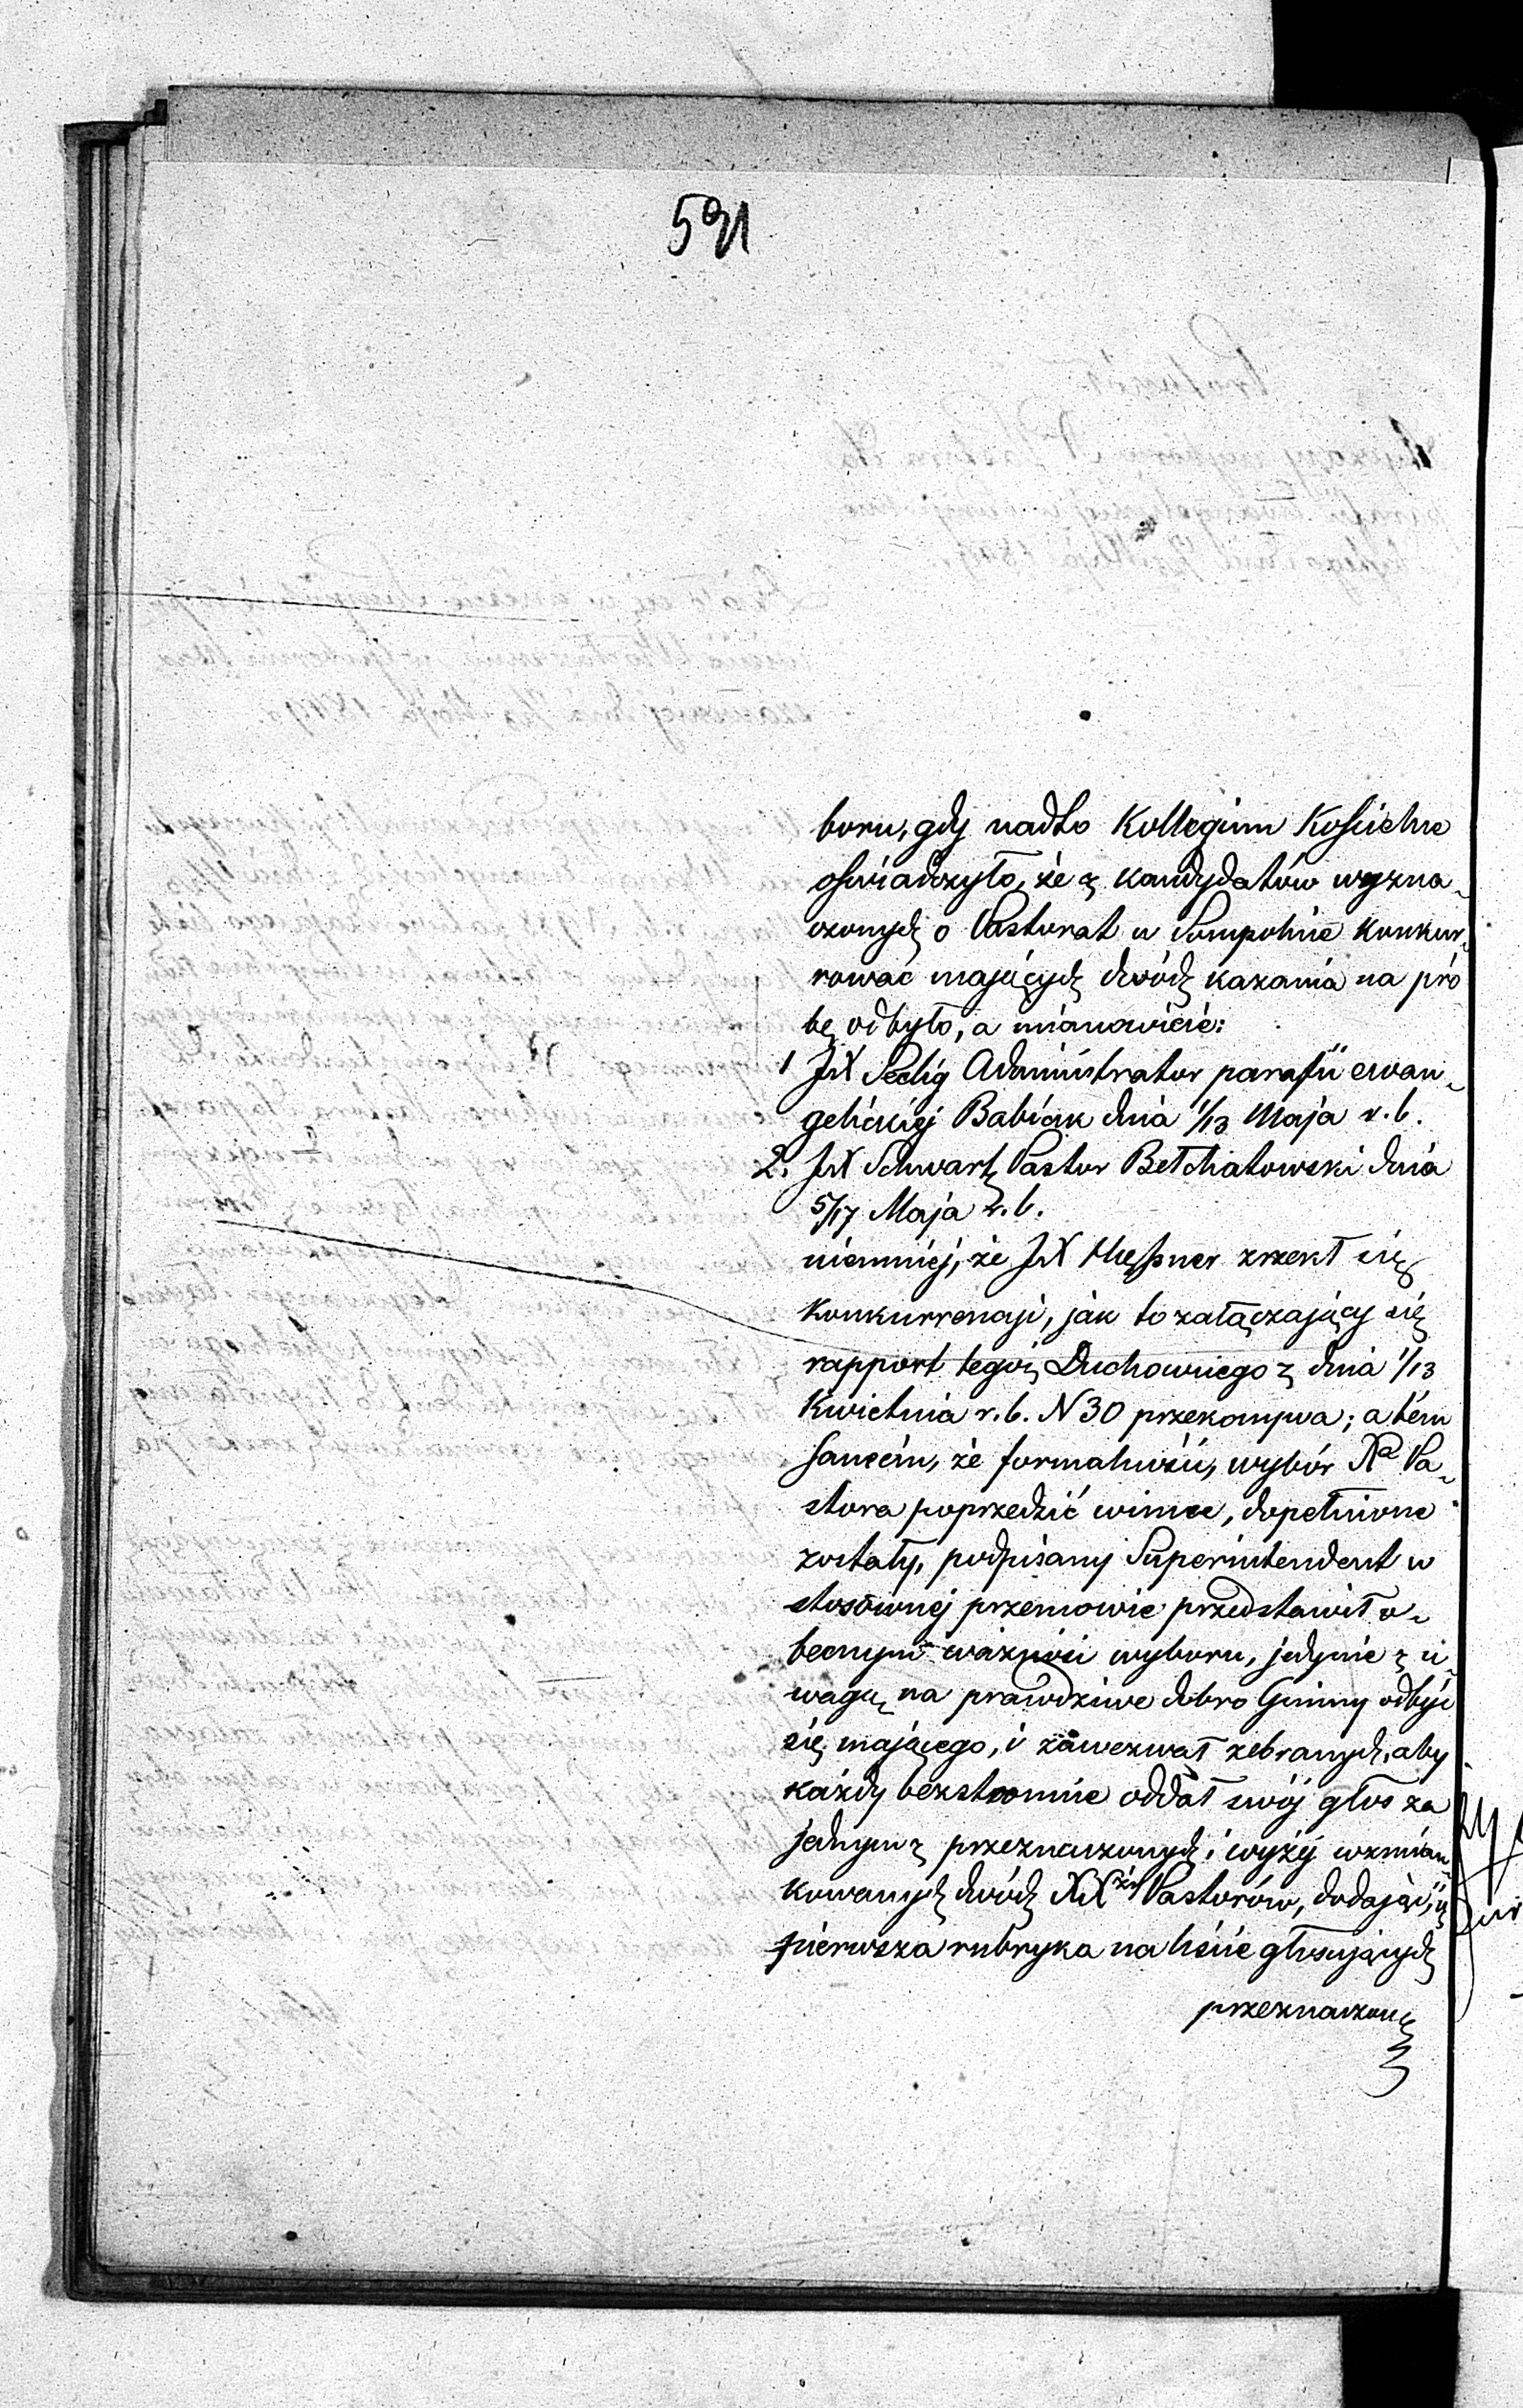 591
boru, gdy nadto Kollegium Kościelne
oświadczyło, że z kandydatów wyzna-
czonych o Pastorat w Sompolnie konkur-
rować mających dwóch kazania na pró
bę odbyło, a mianowicie:
1 JX Sedig Administrator parafii ewan-
gelickiej Babiak dnia 1/13 Maja r. b.
2. JX Schwartz Pastor Bełchatowski dnia
5/17 Maja r. b.
niemniej, że JX zrzekł się
konkurrencji, jak to załączający się
rapport tegoż Duchownego z dnia 1/13
Kwietnia r. b. N 30 przekonywa; a tém
samém, że formalności, wybór Xa Pa-
stora poprzedzić winne, dopełnione
zostały, podpisany Superintendent w
stosownej przemowie przedstawił o-
becnym ważność wyboru, jedynie z u-
wagą na prawdziwe dobro Gminy odbyć
się mającego, i zawezwał zebranych, aby
każdy bezstronnie oddał swój głos za
jednym z przeznaczonych i wyżej wzmian-
kowanych dwóch XXży Pastorów, dodając, iż
pierwsza rubryka na liście głosujących
przeznaczoną